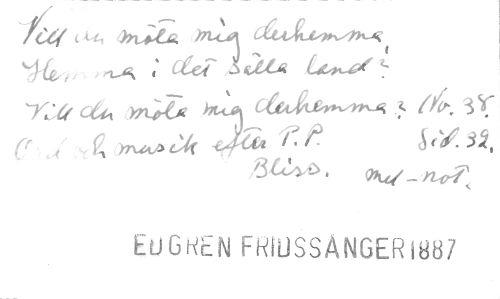 Vill du möta mig derhemma,
Hemma i det sälla land?
Vill du möta mig derhemma? No. 38.
Ord och musik efter P.P. Sid. 32.
Bliss. mel-not.
EUGREN FRIDSSÅNGER 1887